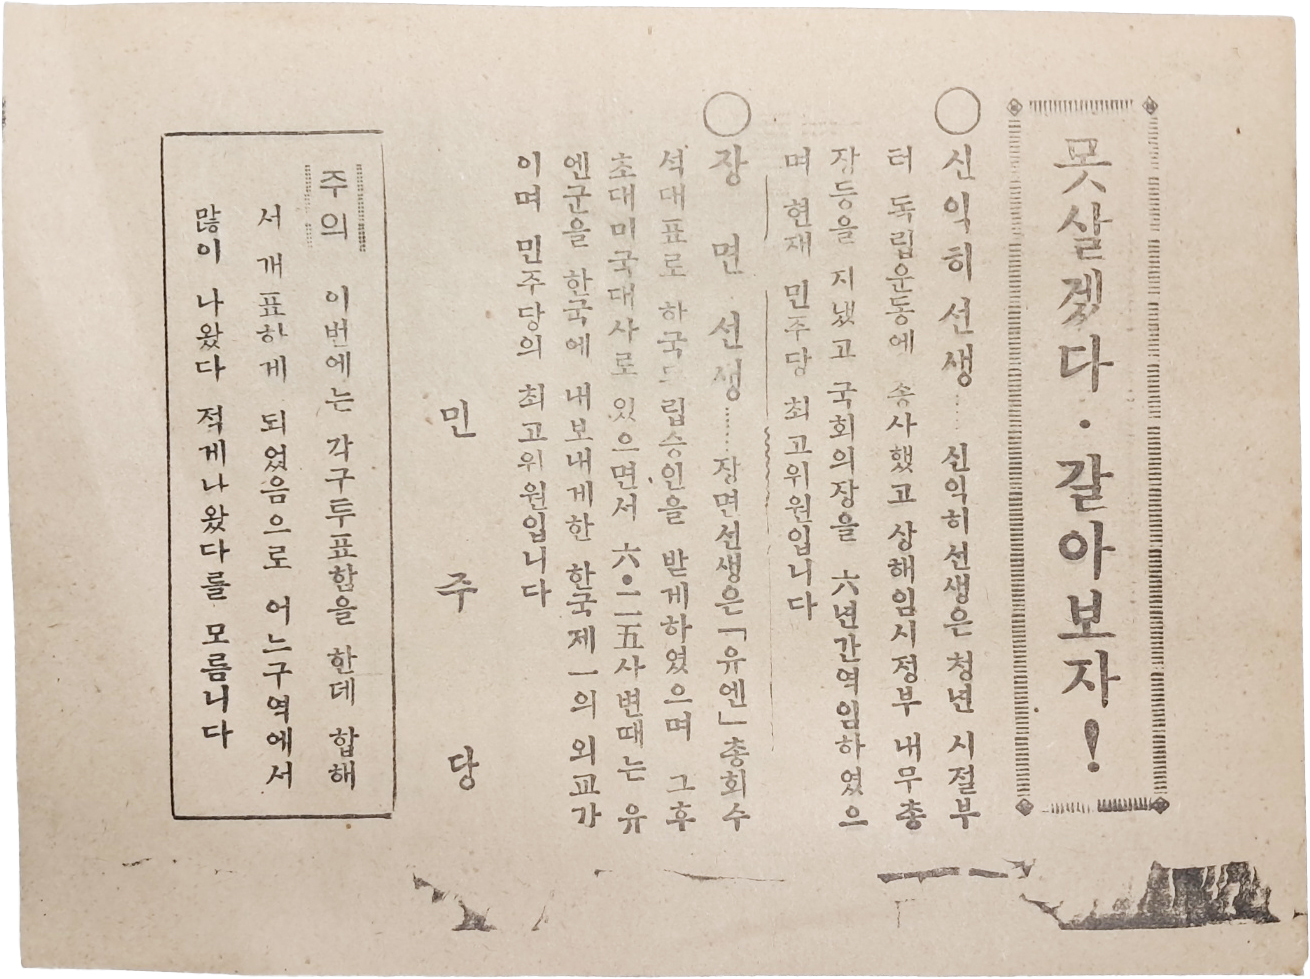 못살겠다·갈아보자!
○신익히선생……신익히선생은 청년 시절부
터 독립운동에 종사했고 상해임시정부 내무총
장등을 지냈고 국회의장을 六년간역임하였으
며 현재 민주당 최고위원입니다
○장 면 선생……장면선생은「유엔」총회수
석대표로 하국도립승인을 받게하였으며 그후
초대미국대사로 있으면서 六•二五사변때는 유
엔군을 한국에 내보내게한 한국제一의 외교가
이며 민주당의 최고위원입니다
민 주 당
주의 이번에는 각구투표함을 한데 합해
서 개표하게 되었음으로 어느구역에서
많이 나왔다 적게나왔다를 모릅니다